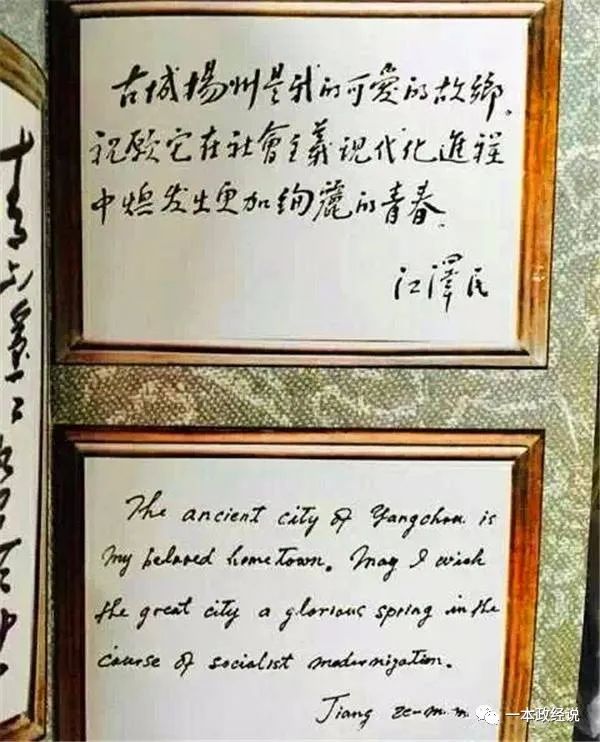 古城揚州是我的可愛的故鄉。
祝願它在社會主義現代化進程
中煥发出更加絢麗的青春.
江澤民
The ancient city of Yangchou is
my beloved hometown. May I wish
the great city a glorious spring in the
course of socialist modernization.
Jiang Ze-min
一本政经说